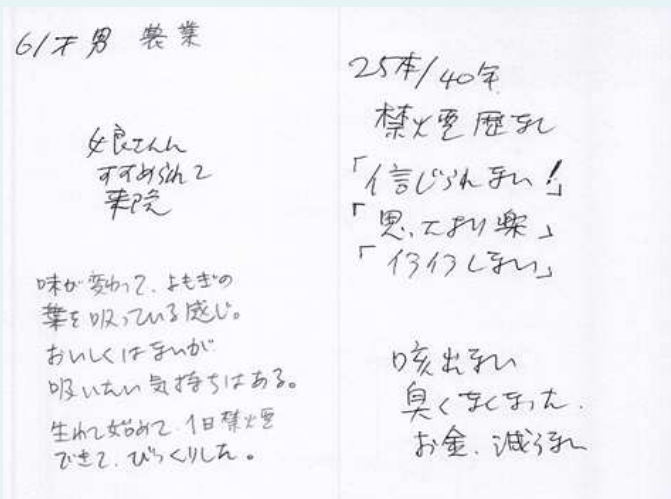 61才男 農業
娘さんに
すすめられて
来院
味が変わって、よもぎの
葉を吸っている感じ。
おいしくはないが
吸いたい気持ちはある。
生れて始めて、1日禁煙
できて、びっくりした。
25本/40年
禁煙歴なし
「信じられない!」
「思ったより楽」
「イライラしない」
咳出ない
臭くなくなった.
お金、減らない